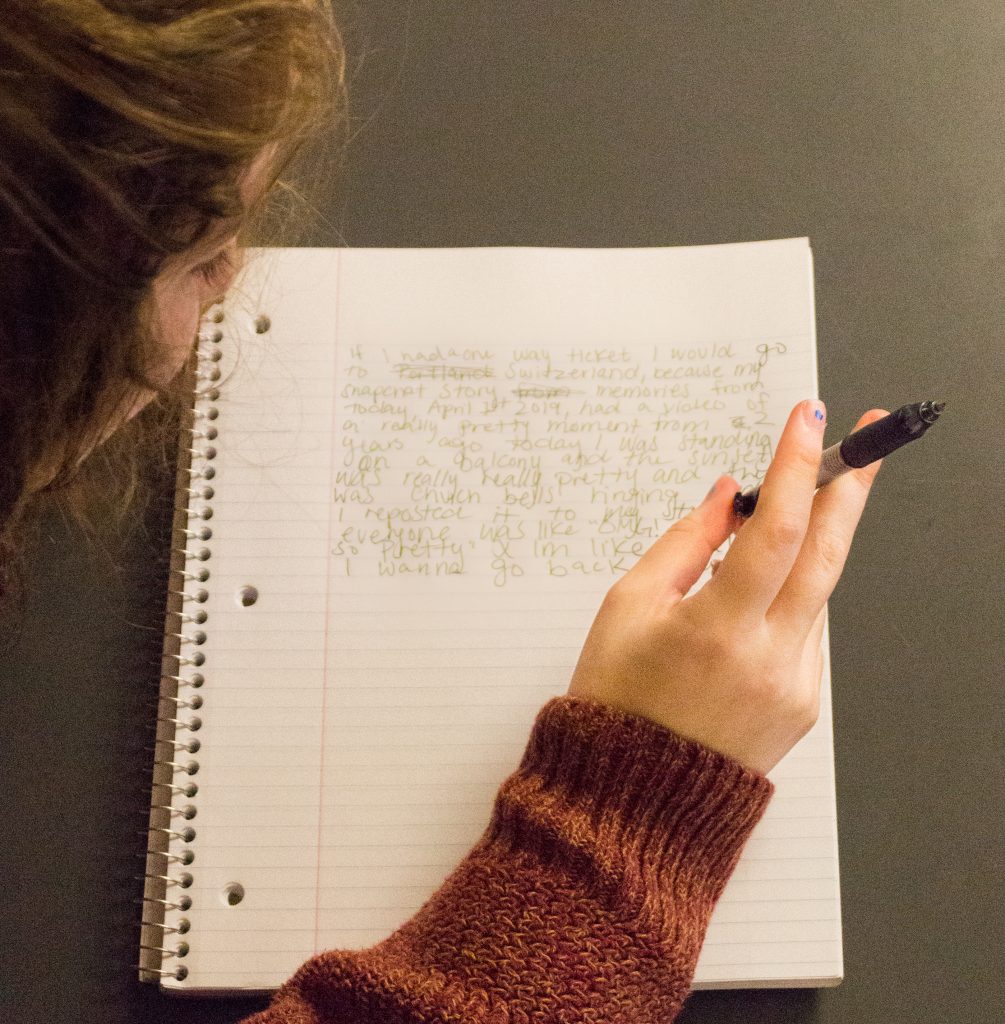 If I had a one way ticket I would go
to Portland Switzerland, because my
snapchat story from memories from
today, April 1st 2019, had a video of
a really pretty moment from 2
years ago today I was standing
on a balcony and the sunset
was really really pretty and
was chuch bells ringing
I reposted it to my
everyone was like "OMG!
so pretty" & Im like
I wanna go back